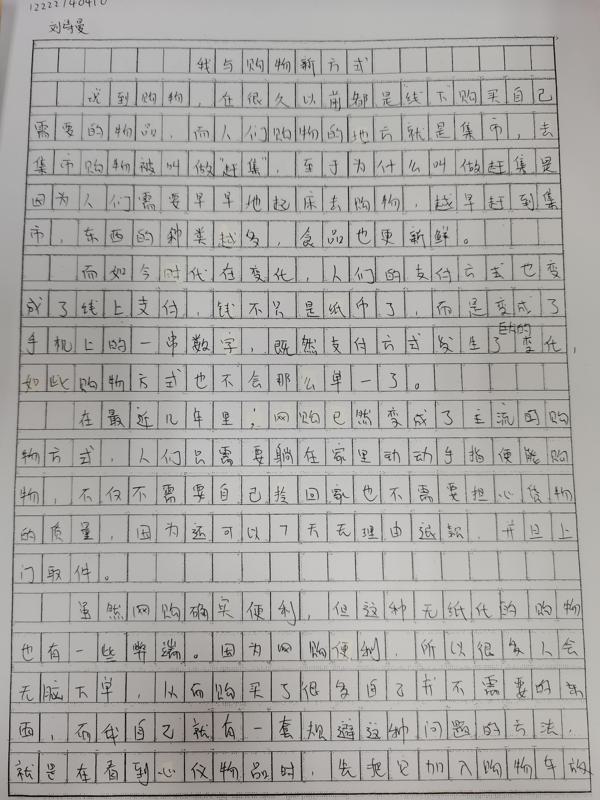 1222214041 0
刘诗曼
我与购物新方式
谈到购物，在很久以前都是线下购买自己
需要的物品，而人们购物的地方就是集市，去
集市购物被叫做"赶集"，至于为什么叫做赶集是
因为人们需要早早地起床去购物，越早赶到集
市，东西的种类越多，食品也更新鲜。
而如今时代在变化，人们的支付方式也变
成了线上支付，钱不只是纸币了，而是变成了
手机上的一串数字，既然支付方式发生了巨大的变化，
如此购物方式也不会那么单一了。
在最近几年里；网购已然变成了主流的购
物方式，人们只需要躺在家里动动手指便能购
物，不仅不需要自己拎回家也不需要担心货物
的质量，因为还可以7天无理由退款，并且上
门取件。
虽然网购确实便利，但这种无纸化的购物
也有一些弊端。因为网购便利，所以很多人会
无脑下单，从而购买了很多自己并不需要的东
西，而我自己就有一套规避这种问题的方法，
就是在看到心仪物品时，先把它加入购物车放